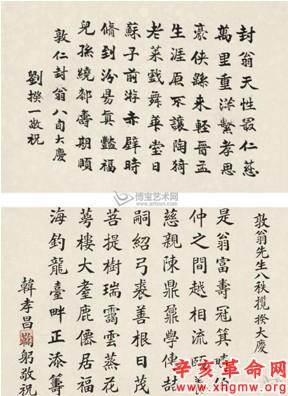 封翁天性最仁慈
萬里重洋縈孝思
豪俠繇來輕晉孟
生涯原不讓陶猗
老萊戲舞華堂日
蘇子前游赤壁時
脩到汾陽真豔福
兒孫繞郄壽期頤
敦仁封翁八旬大慶
劉揆一敬祝
博宝艺术网
敦翁先生八秩攬揆大慶
是翁富壽冠箕疇伯
仲之間越相流頤養
慈親陳鼎鼐學傳喆
嗣紹弓裘善根日茂
菩提樹瑞靄雲蒸花
萼樓大耋鹿僊居福
海釣龍臺畔正添籌
韓孝昌 躬敬祝
辛亥革命网